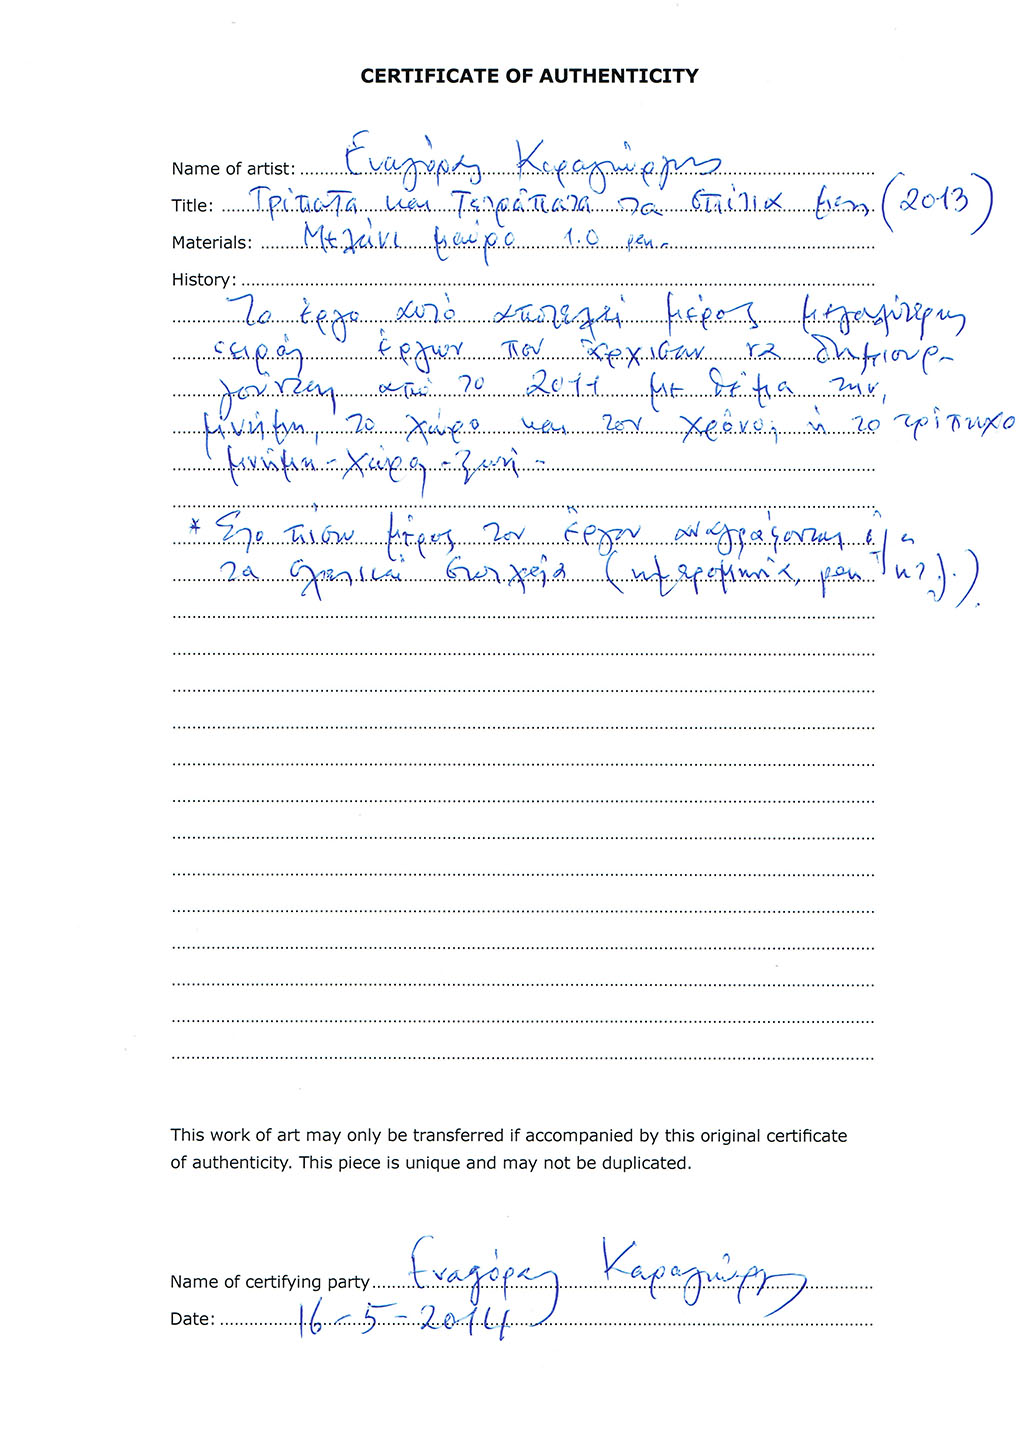 CERTIFICATE OF AUTHENTICITY
Name of artist: Ευαγόρας Καραγιώργης
Title: Τρίπατα και Τετράπατα τα σπίτια μας (2013)
Materials: Μελάνι μαύρο 1.0 pen
History:
Το έργο αυτό αποτελεί μέρος μεγαλύτερης
σειράς έργων που άρχισαν να δημιουρ-
γούνται από το 2011 με θέμα την
μνήμη, το χώρο και τον χρόνο, ή το τρίπτυχο
μνήμη - χώρος - ζωή -
* Στο πίσω μέρος του έργου αναγράφονται
τα στοιχεία (ημερομηνία, pen κτλ.)
This work of art may only be transferred if accompanied by this original certificate
of authenticity. This piece is unique and may not be duplicated.
Name of certifying party Ευαγόρας Καραγιώργης
Date: 16-5-2014